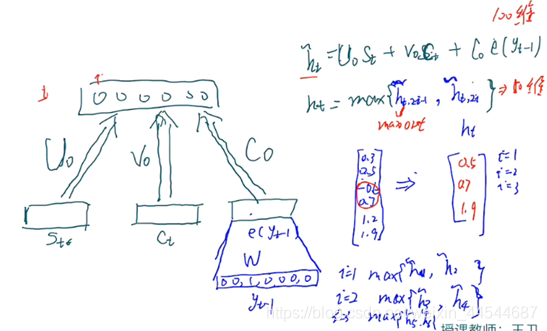 100维
h̃t = U0 St + V0 Ct + C0 e(yt-1)
ht = max{h̃t,2i-1, h̃t,2i}
maxout
ht
1
0 0 0 0 0 0
U0
V0
C0
Ct
e(yt-1)
W
0 0, 1, 0, 0, 0
yt-1
0.3
0.5
0.7
1.2
1.9
⇒
0.5
0.7
1.9
i=1
i=2
i=3
i=1 max{h̃1, h̃2}
i=2 max{h̃3, h̃4}
i=3 max{h5, h6}
授课教师：王
https://blog.csdn.net/weixin_44544687